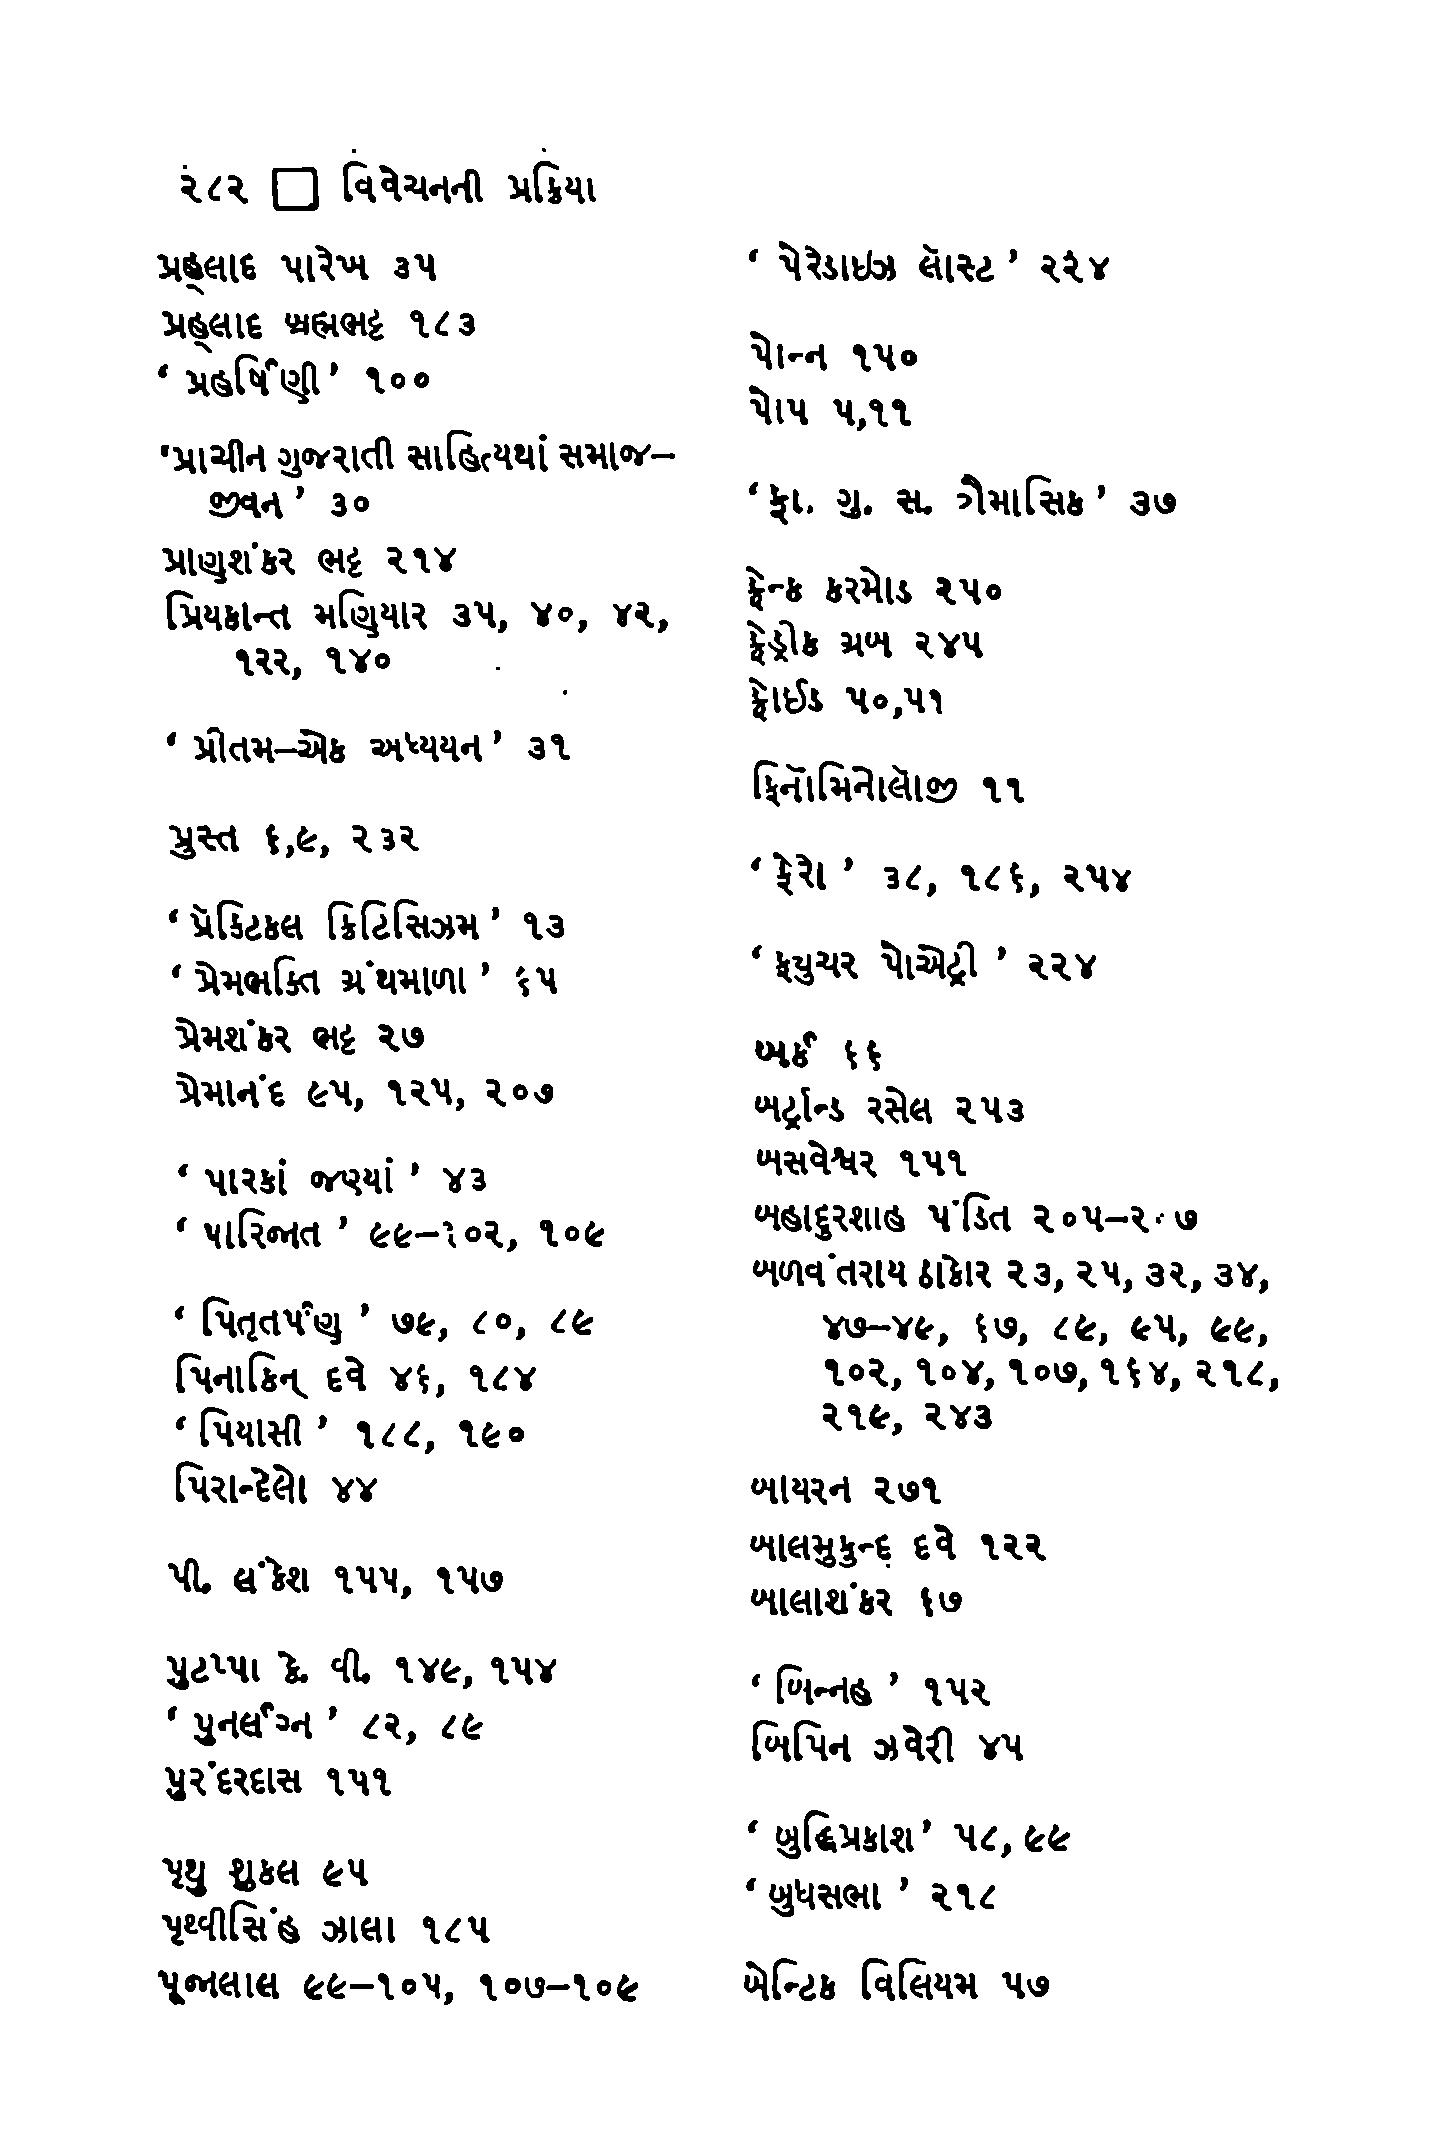 ૨૮૨ □ વિવેચનની પ્રક્રિયા
પ્રહ્લાદ પારેખ ૩૫
પ્રહ્લાદ બ્રહ્મભટ્ટ ૧૮૩
‘ પ્રહર્ષિણી ’ ૧૦૦
‘પ્રાચીન ગુજરાતી સાહિત્યથાં સમાજ–
જીવન ’ ૩૦
પ્રાણશંકર ભટ્ટ ૨૧૪
પ્રિયકાન્ત મણિયાર ૩૫, ૪૦, ૪૨,
૧૨૨, ૧૪૦
‘ પ્રીતમ–એક અધ્યયન ’ ૩૧
પ્રુસ્ત ૬,૯, ૨૩૨
‘ પ્રૅક્ટિકલ ક્રિટિસિઝમ ’ ૧૩
‘ પ્રેમભક્તિ ગ્રંથમાળા ’ ૬૫
પ્રેમશંકર ભટ્ટ ૨૭
પ્રેમાનંદ ૯૫, ૧૨૫, ૨૦૭
‘ પારકાં જણ્યાં ’ ૪૩
‘ પારિજાત ’ ૯૯–૧૦૨, ૧૦૯
‘ પિતૃતર્પણ ’ ૭૯, ૮૦, ૮૯
પિનાકિન્ દવે ૪૬, ૧૮૪
‘ પિયાસી ’ ૧૮૮, ૧૯૦
પિરાન્દેલો ૪૪
પી. લંકેશ ૧૫૫, ૧૫૭
પુટપ્પા કે. વી. ૧૪૯, ૧૫૪
‘ પુનર્લગ્ન ’ ૮૨, ૮૯
પુરંદરદાસ ૧૫૧
પૃથુ શુકલ ૯૫
પૃથ્વીસિંહ ઝાલા ૧૮૫
પૂજાલાલ ૯૯–૧૦૫, ૧૦૭–૧૦૯
‘ પેરેડાઇઝ લૉસ્ટ ’ ૨૨૪
પોન્ન ૧૫૦
પોપ ૫,૧૧
‘ ફા. ગુ. સ. ત્રૈમાસિક ’ ૩૭
ફ્રેન્ક કરમોડ ૨૫૦
ફ્રેડ્રીક ગ્રબ ૨૪૫
ફ્રોઈડ ૫૦,૫૧
ફિનૉમિનોલૉજી ૧૧
‘ ફેરો ’ ૩૮, ૧૮૬, ૨૫૪
‘ ફ્યુચર પોએટ્રી ’ ૨૨૪
બર્ક ૬૬
બર્ટ્રાન્ડ રસેલ ૨૫૩
બસવેશ્વર ૧૫૧
બહાદુરશાહ પંડિત ૨૦૫–૨૦૭
બળવંતરાય ઠાકોર ૨૩, ૨૫, ૩૨, ૩૪,
૪૭–૪૯, ૬૭, ૮૯, ૯૫, ૯૯,
૧૦૨, ૧૦૪, ૧૦૭, ૧૬૪, ૨૧૮,
૨૧૯, ૨૪૩
બાયરન ૨૭૧
બાલમુકુન્દ દવે ૧૨૨
બાલાશંકર ૬૭
‘ બિન્નહ ’ ૧૫૨
બિપિન ઝવેરી ૪૫
‘ બુદ્ધિપ્રકાશ ’ ૫૮, ૯૯
‘ બુધસભા ’ ૨૧૮
બેન્ટિક વિલિયમ ૫૭